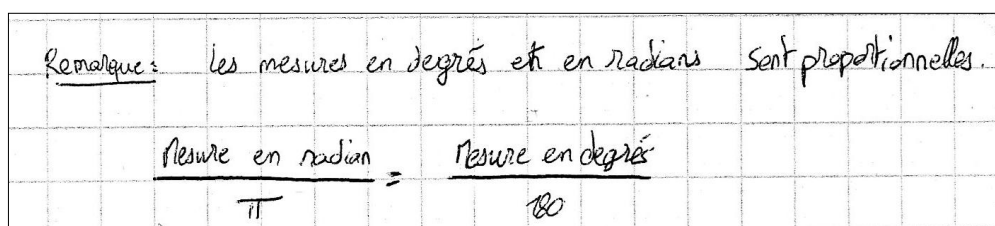 Remarque: Les mesures en degrés et en radians sont proportionnelles.
Mesure en radian / π = Mesure en degrés / 180